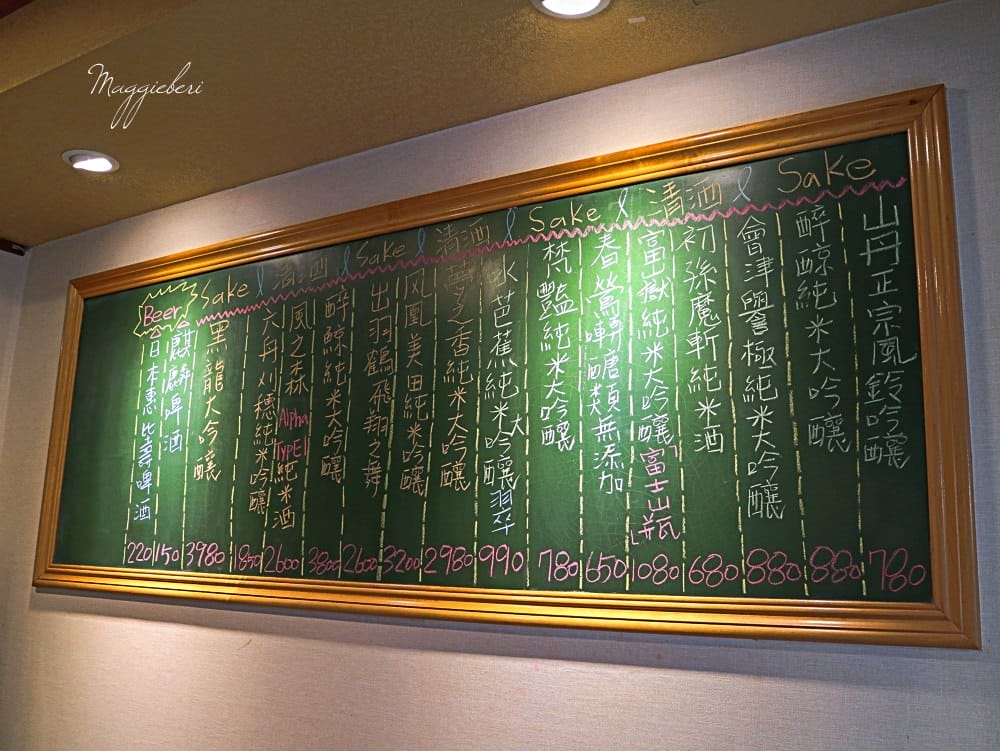 Maggieberi
Sake & 清酒 & Sake & 清酒 & Sake & 清酒 & Sake
山丹正宗風鈴吟釀 780
醉鯨純米大吟釀 880
會津譽極純米大吟釀 880
初孫魔斬純米酒 680
富嶽純米大吟釀「富士山瓶」 1080
春鶯囀醣類無添加 650
梵豔純米大吟釀 780
水芭蕉純米大吟釀翠 990
香純米吟釀 2980
鳳凰美田純米吟釀 3200
出羽鶴飛翔之舞 2600
醉鯨純米大吟釀 3800
風之森 Alpha TYPE1 純米酒 2600
六舟刈穗純米吟釀 1850
黑龍大吟釀 3980
Beer
麒麟啤酒 150
日本惠比壽啤酒 220